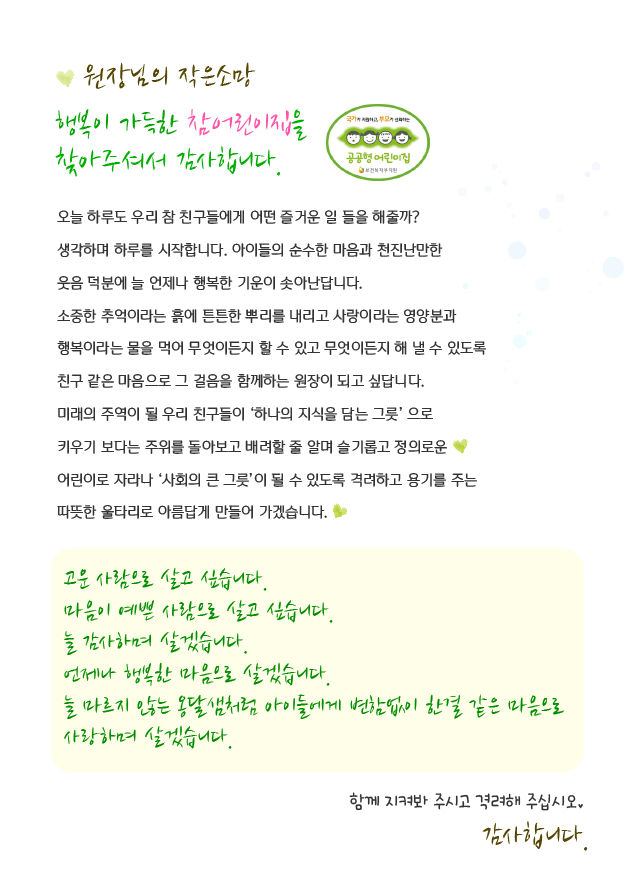 원장님의 작은소망
행복이 가득한 참어린이집을
찾아주셔서 감사합니다.
국가가 지원하고, 부모가 신뢰하는
공공형어린이집
보건복지부지원
오늘 하루도 우리 참 친구들에게 어떤 즐거운 일 들을 해줄까?
생각하며 하루를 시작합니다. 아이들의 순수한 마음과 천진난만한
웃음 덕분에 늘 언제나 행복한 기운이 솟아난답니다.
소중한 추억이라는 흙에 튼튼한 뿌리를 내리고 사랑이라는 영양분과
행복이라는 물을 먹어 무엇이든지 할 수 있고 무엇이든지 해 낼 수 있도록
친구 같은 마음으로 그 걸음을 함께하는 원장이 되고 싶답니다.
미래의 주역이 될 우리 친구들이 ‘하나의 지식을 담는 그릇’ 으로
키우기 보다는 주위를 돌아보고 배려할 줄 알며 슬기롭고 정의로운
어린이로 자라나 ‘사회의 큰 그릇’이 될 수 있도록 격려하고 용기를 주는
따뜻한 울타리로 아름답게 만들어 가겠습니다.
고운 사람으로 살고 싶습니다.
마음이 예쁜 사람으로 살고 싶습니다.
늘 감사하며 살겠습니다.
언제나 행복한 마음으로 살겠습니다.
늘 마르지 않는 옹달샘처럼 아이들에게 변함없이 한결 같은 마음으로
사랑하며 살겠습니다.
함께 지켜봐 주시고 격려해 주십시오♥
감사합니다.